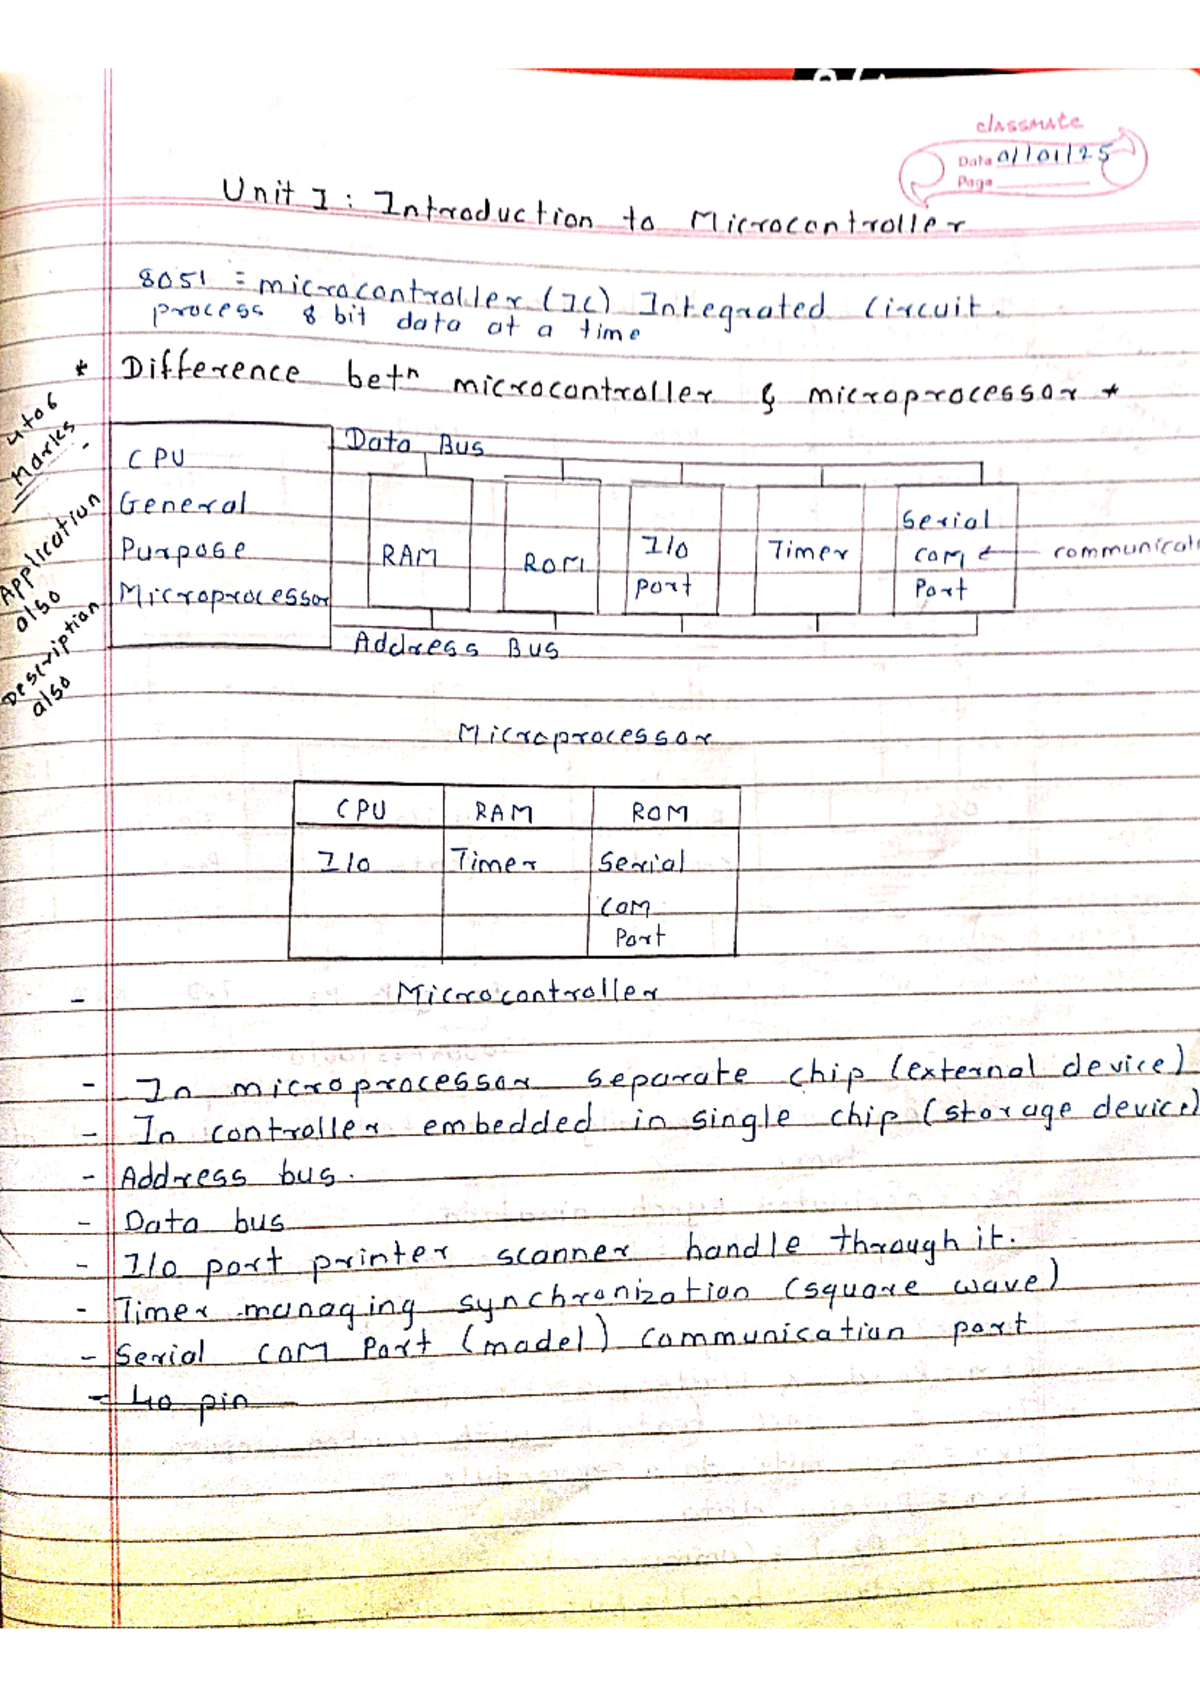 classmate
Date 01/01/25
Page
Unit I : Introduction to Microcontroller
8051 = microcontroller (IC) Integrated Circuit.
process 8 bit data at a time
* Difference betⁿ microcontroller & microprocessor *
4 to 6
Marks
Application
also
Description
also
CPU
General
Purpose
Microprocessor
Data Bus
RAM
ROM
I/O
Port
Timer
Serial
COM ← communicati
Port
Address Bus
Microprocessor
CPU RAM ROM
I/O Timer Serial
COM
Port
- Microcontroller
- In microprocessor separate chip (external device)
- In controller embedded in single chip (storage device)
- Address bus.
- Data bus
- I/O port printer scanner handle through it.
- Timer managing synchronization (square wave)
- Serial COM Port (model) Communication port
- 40 pin